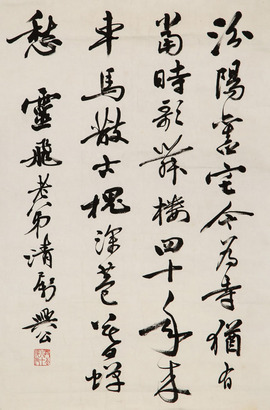 汾陽舊宅今為寺猶有
當時歌舞樓四十年來
車馬散古槐深巷暮蟬
愁 靈飛老弟清屬 興公